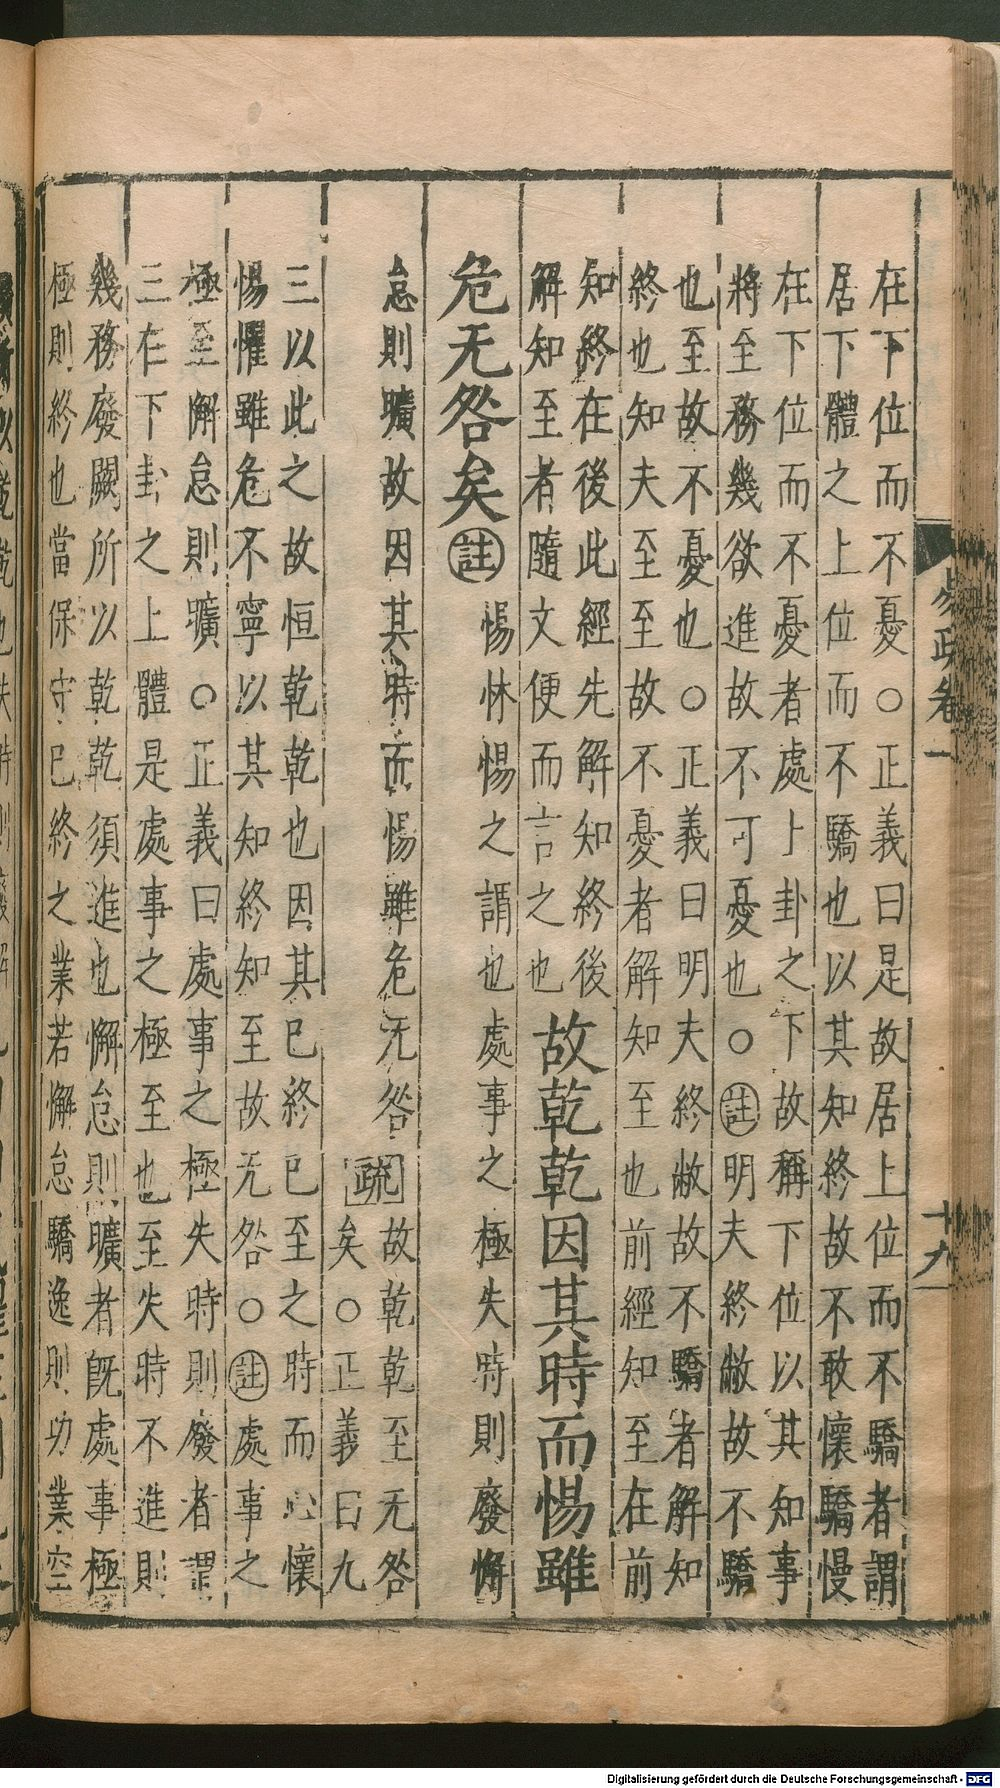 易疏卷一
十九
在下位而不憂○正義曰是故居上位而不驕者謂
居下體之上位而不驕也以其知終故不敢懷驕慢
在下位而不憂者處上卦之下故稱下位以其知事
將至務幾欲進故不可憂也○註明夫終敝故不驕
也至故不憂也○正義曰明夫終敝故不驕者解知
終也知夫至至故不憂者解知至也前經知至在前
知終在後此經先解知終後
解知至者隨文便而言之也
故乾乾因其時而惕雖
危无咎矣註
惕怵惕之謂也處事之極失時則廢懈
怠則曠故因其時而惕雖危无咎
疏
故乾乾至无咎
矣○正義曰九
三以此之故恒乾乾也因其已終已至之時而心懷
惕懼雖危不寧以其知終知至故无咎○註處事之
極至懈怠則曠○正義曰處事之極失時則廢者謂
三在下卦之上體是處事之極至也至失時不進則
幾務廢闕所以乾乾須進也懈怠則曠者旣處事極
極則終也當保守已終之業若懈怠驕逸則功業空
Digitalisierung gefördert durch die Deutsche Forschungsgemeinschaft - DFG